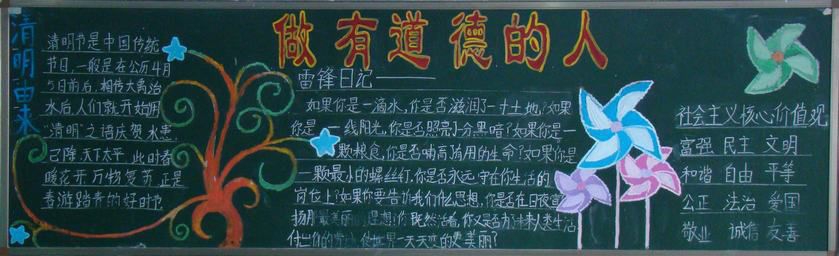 清明由来
清明节是中国传统
节日,一般是在公历4月
5日前后,相传大禹治
水后人们就开始用
"清明"之语庆贺水患
已除,天下太平,此时春
暖花开万物复苏正是
春游踏青的好时
做有道德的人
雷锋日记——
如果你是一滴水,你是否滋润了一寸土地?如果
你是一线阳光,你是否照亮了分黑暗?如果你是一
颗粮食,你是否哺育有用的生命?如果你是
一颗最小的螺丝钉,你是否永远守在你生活的
岗位上?如果你要告诉我们什么思想,你是否在日夜宣
扬那最美丽理想?你既然活着,你又是否为未来人类生活
付出你的劳动,使世界一天天变的更美丽?
社会主义核心价值观
富强 民主 文明
和谐 自由 平等
公正 法治 爱国
敬业 诚信 友善